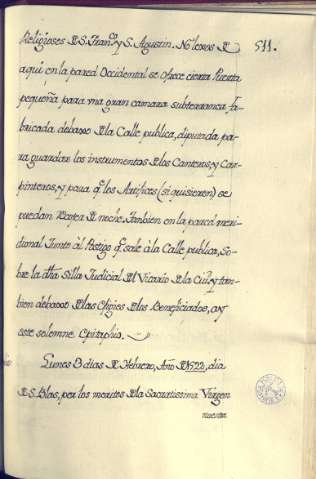 Religiosos de S. Franco. y S. Agustin. No lexos de
511.
aqui, en la pared Occidental se ofrece cierta Puerta
pequeña para vna gran camara subterranea fa-
bricada debaxo de la Calle publica, diputada pa-
ra guardar los instrumentos de los Canteros, y Car-
pinteros, y para q. los Artifices (si quisieren) se
puedan Baxar de noche. Tambien en la pared meri-
dional Junto àl Postigo q. sale à la Calle publica, So-
bre la dha Silla Judicial del Vicario de la Ciud. y tam-
bien debaxo de las Efigies de los Beneficiados, ay
este solemne Epitaphio.
Lunes 3 dias de Hebrero, Año de 1522, dia
de S. Blas, por los meritos de la Sacratissima Virgen
nuestra